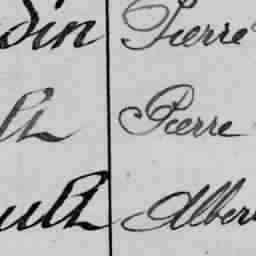 din Pierre
lt Pierre
ult Alber